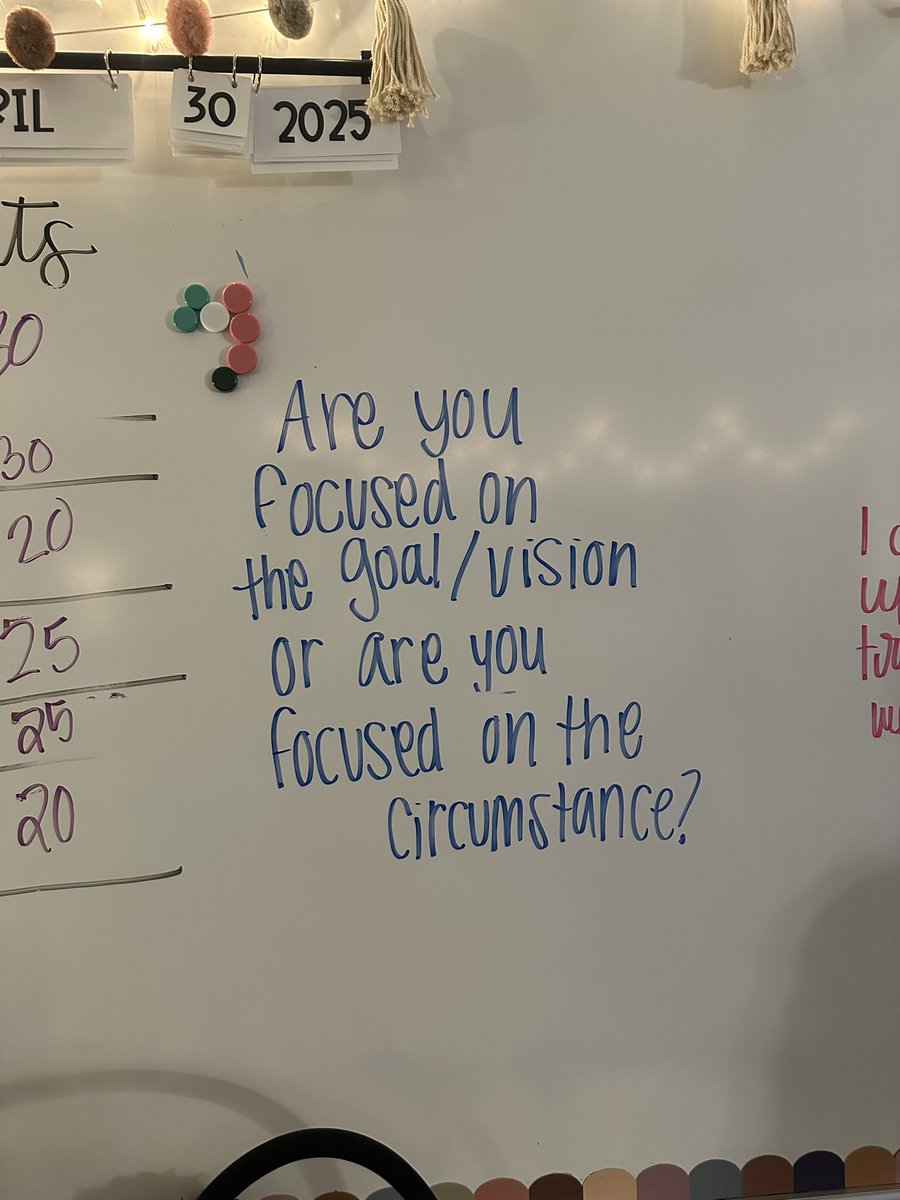 30 2025
30
30
20
25
25
20
Are you
focused on
the goal/vision
or are you
focused on the
circumstance?
I